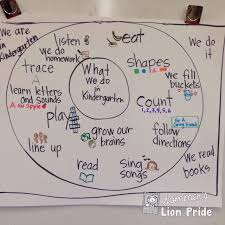 We are
in
Kindergarten
listen
we do
homework
eat
We do
it
trace
A
learn letters
and sounds
Aa apple
What
We do
in
Kindergarten
shapes
we fill
buckets
Count
1,2,3,4,5,6
play
grow our
brains
follow
directions
read
sing
songs
We read
books
Lion Pride